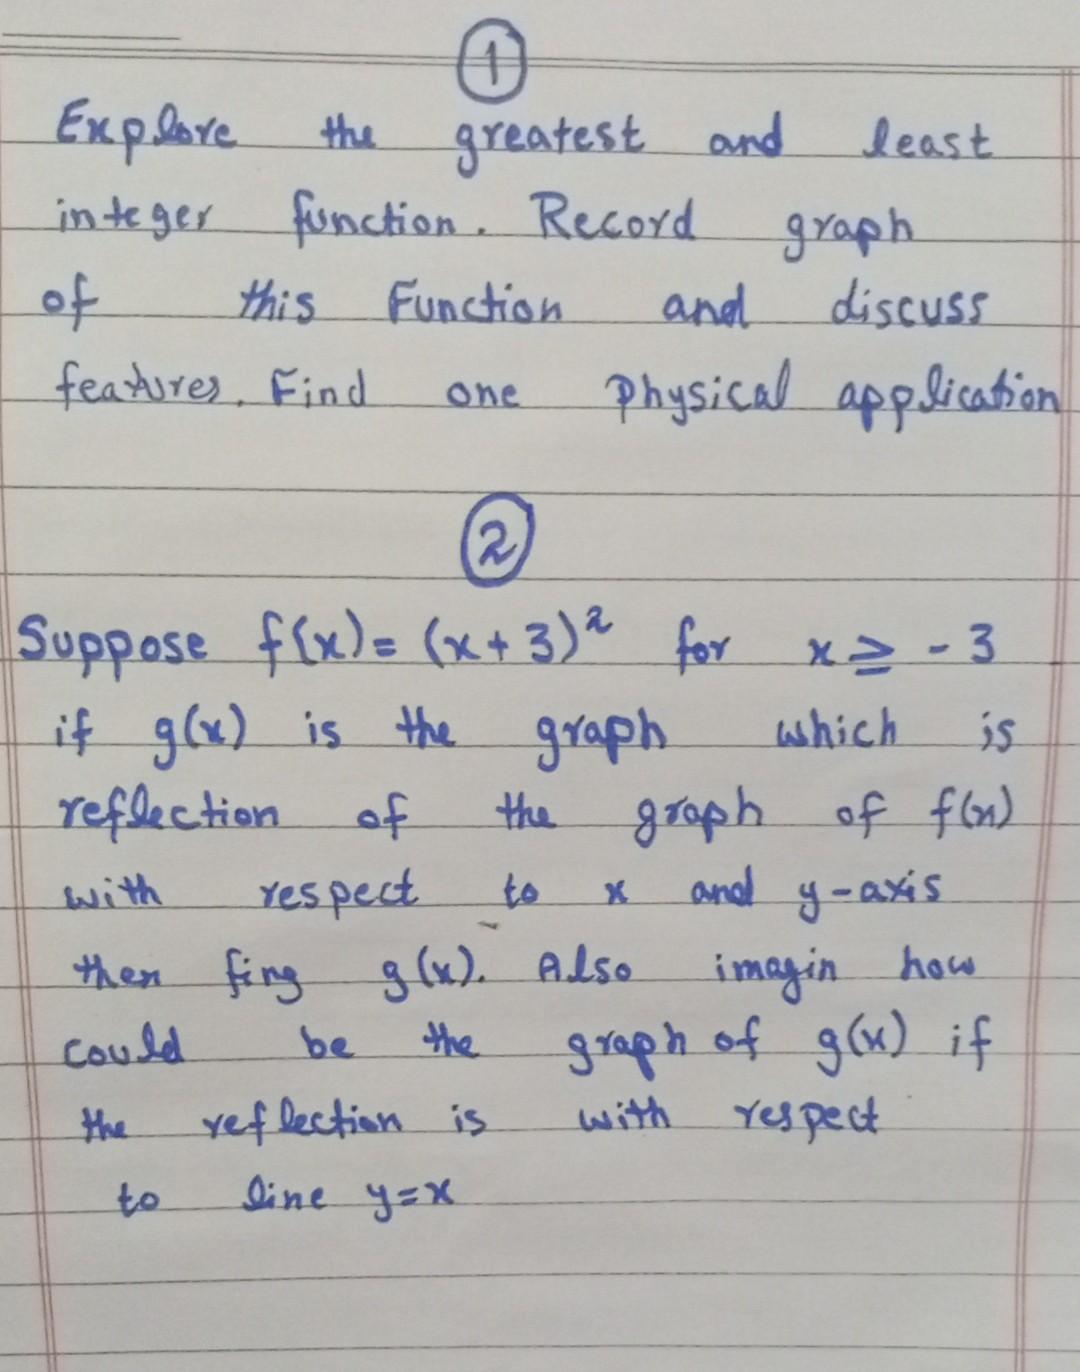 1
Explore the greatest and least
integer function. Record graph
of this Function and discuss
features. Find one Physical application
2
Suppose f(x) = (x+3)² for x ≥ -3
if g(x) is the graph which is
reflection of the graph of f(x)
with respect to x and y-axis
then fing g(x). Also imagin how
could be the graph of g(x) if
the reflection is with respect
to line y=x